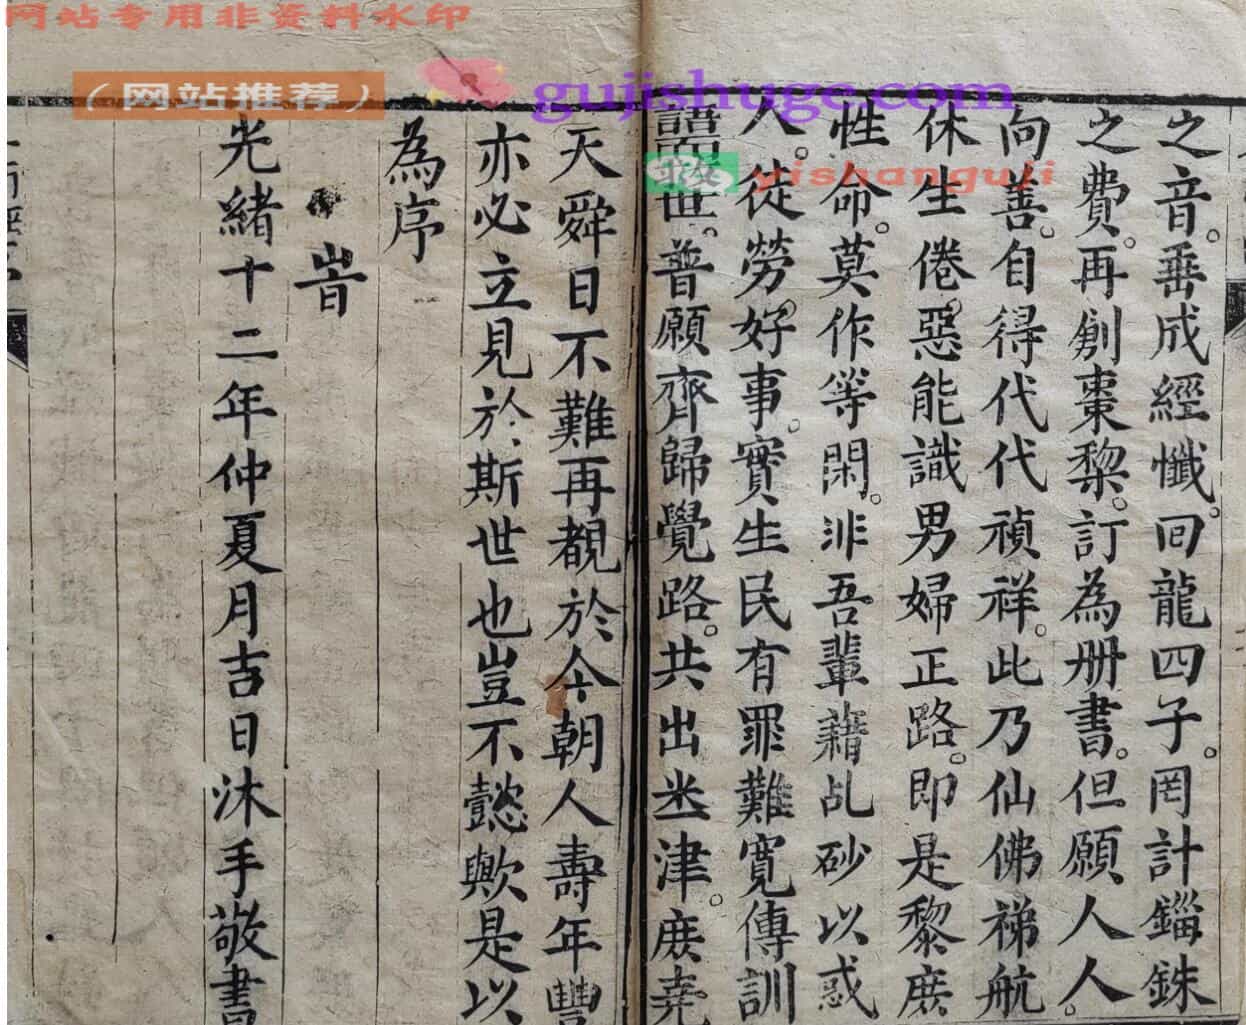 网站专用非资料水印
（网站推荐）
gujishuge.com
yishanguji
之音。垂成經懺。回龍四子。罔計錙銖
之費。再創棗梨。訂為册書。但願人人。
向善。自得代代禎祥。此乃仙佛梯航
休生倦。惡能識男婦正路。即是黎庶
性命。莫作等閑。非吾輩藉乩砂以惑
人。徒勞。好事。實生民有罪難寬傳訓
世。普願齊歸覺路。共出迷津。庶堯
天舜日不難再覩於今朝人壽年豐
亦必立見於斯世也豈不懿歟是以
為序
旹
光緒十二年仲夏月吉日沐手敬書